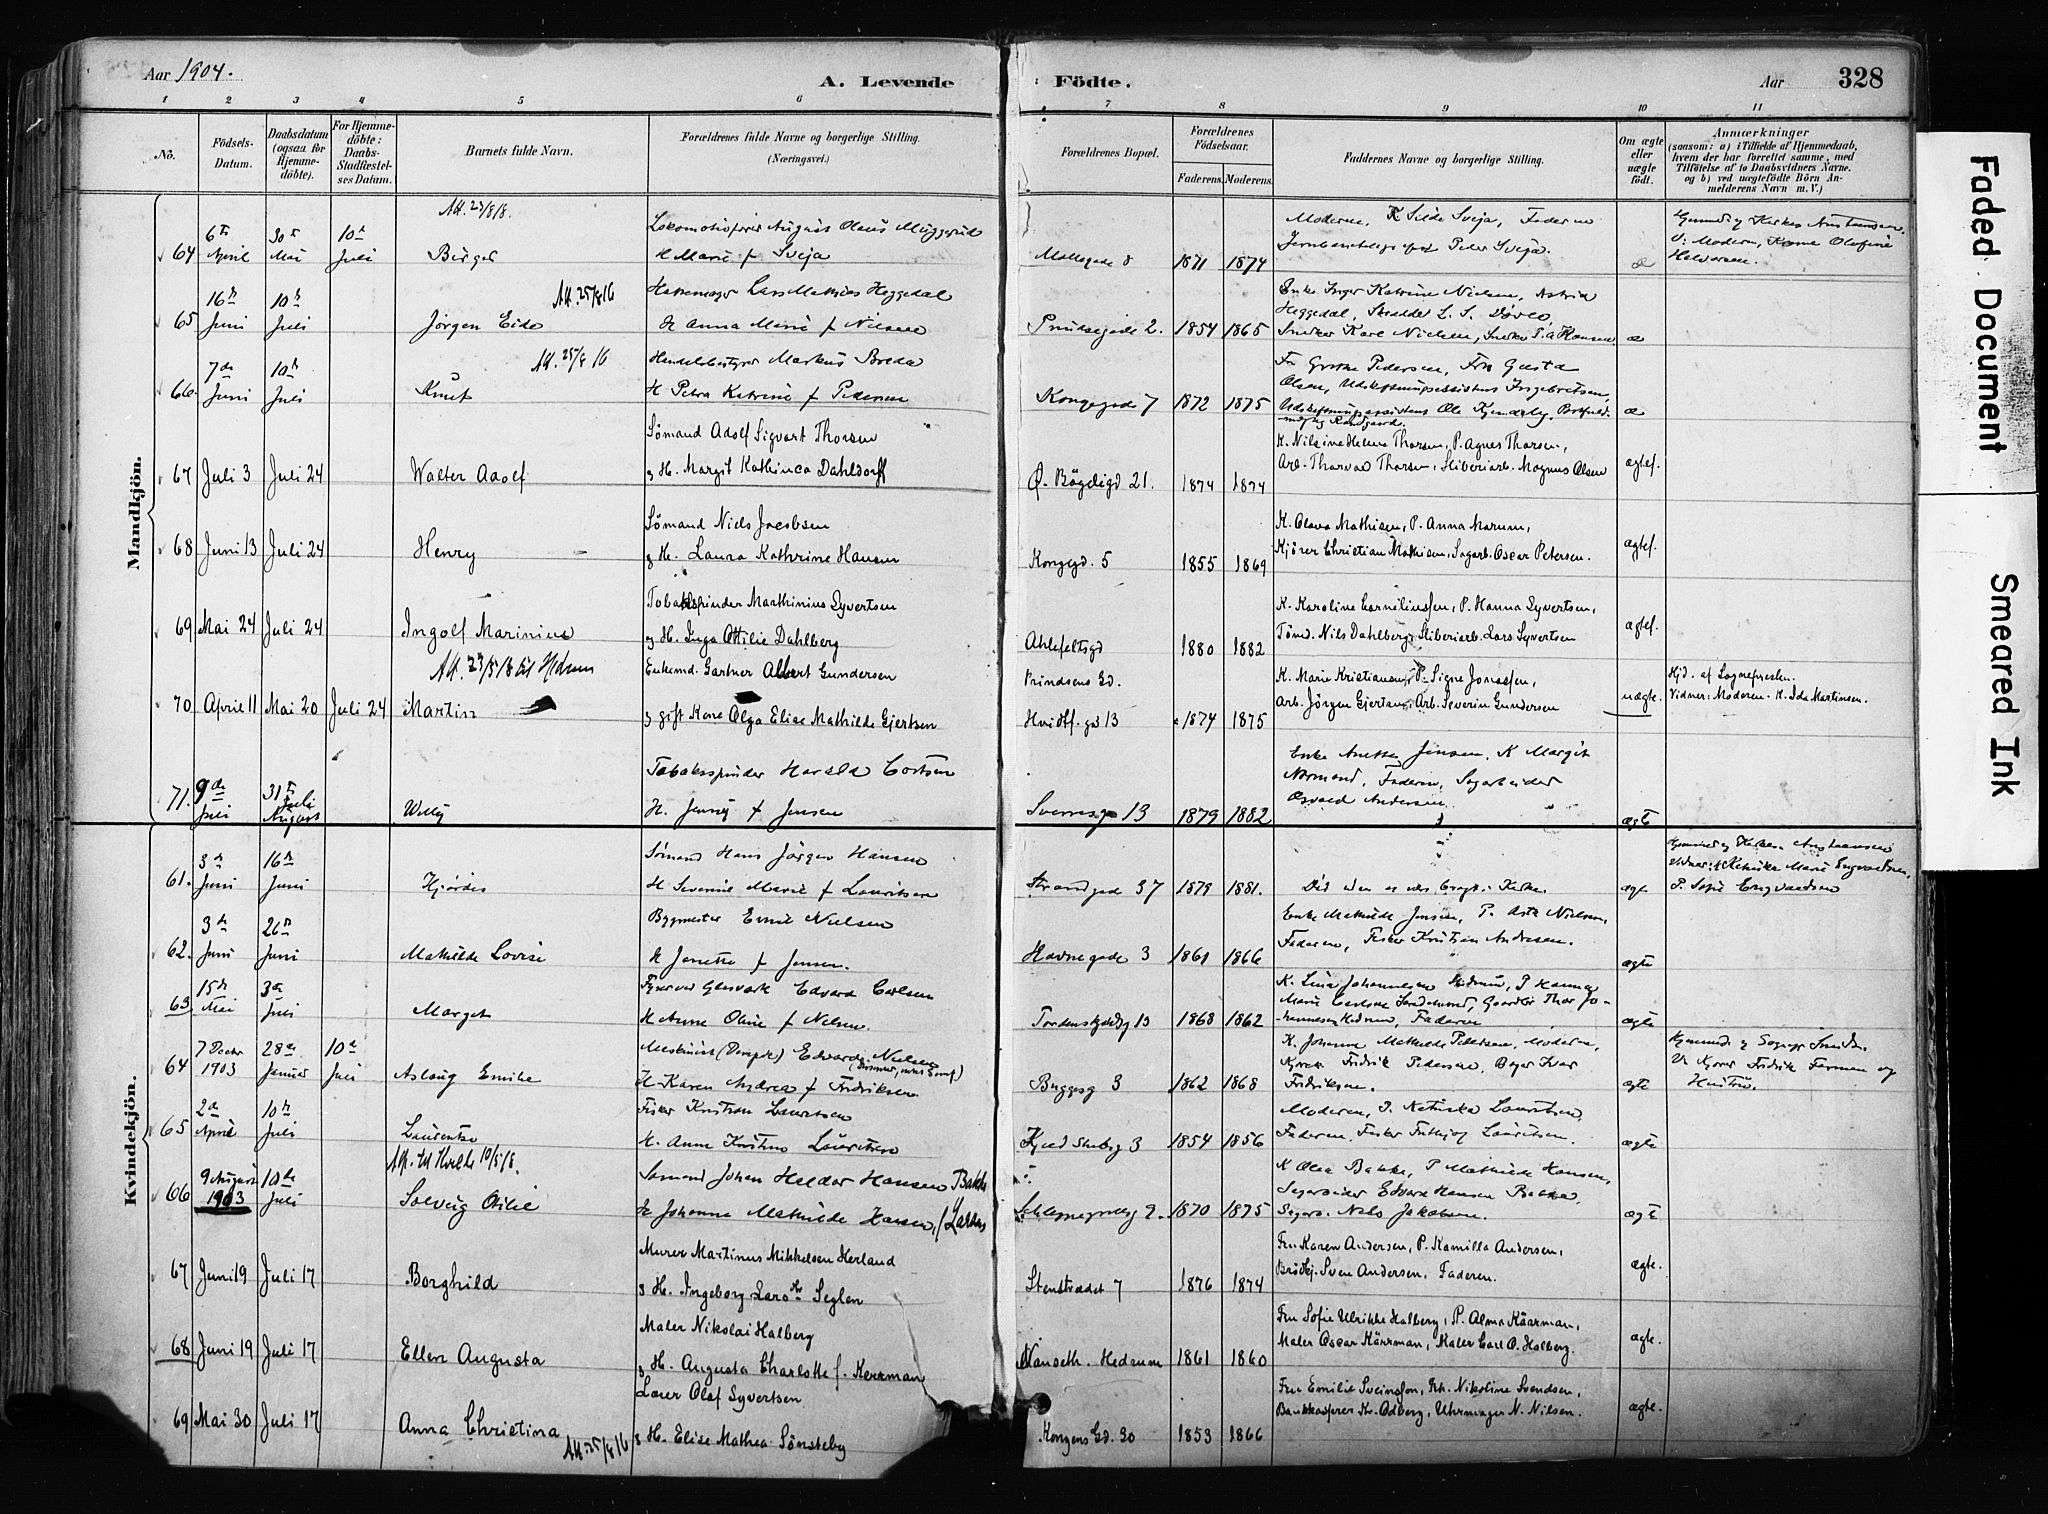 Aar 1904.
A. Levende
Födte.
Aar
328
1 2 3 4 5 6 7 8 9 10 11
No.
Födsels-
Datum.
Daabsdatum
(ogsaa for
Hjemme-
döbte).
For Hjemme-
döbte:
Daabs-
Stadfæstel-
ses Datum.
Barnets fulde Navn.
Forældrenes fulde Navne og borgerlige Stilling.
(Næringsvei.)
Forældrenes Bopæl.
Forældrenes
Födselsaar.
Faderens. Moderens.
Faddernes Navne og borgerlige Stilling.
Om ægte
eller
uægte
födt.
Anmærkninger
(saasom: a) i Tilfælde af Hjemmedaab,
hvem der har forrettet samme, med
Tilföielse af to Daabsvidners Navne.
og b) ved uægtefödte Börn An-
melderens Navn m. V.)
Mandkjön.
Att. 23/8/8.
64 6te April 30te Mai 10de Juli
Birger
August Olaus Muggerud
H Marie f Sveja
Møllegade 8 1871 1874
Moderen, K Silde Sveja, Faderen
Peter Sveja
æ
V: Moderen, Kone Olafine
Halvorsen.
65 16de Juni 10de Juli
Att. 25/8 16
Jörgen Eido
Lars Mathias Heggedal
H Anna Marie f Nielsen
Prindsegade 2. 1854 1865
Enke Inger Katrine Nielsen, Astrid
Heggedal, L. S. Dövle,
Snedker Karl Nielsen, Snedker P. A Hansen
æ
66 7de Juni 10de Juli
Att. 25/8 16
Knut
Handelsbestyrer Markus Breda
H Petra Katrine f Pedersen
Kongegade 7 1872 1875
Fr Grethe Pedersen, Frk Gusta
Olsen, Udskiftningsassistent Ingebretsen,
Udskiftningsassistent Ole
æ
67 Juli 3 Juli 24
Walter Adolf
Sömand Adolf Sigvart Thorsen
g H. Margit Kathinca Dahldorff
Ø. Bögeligd 21. 1874 1874
K. Nilsine Helene Thorsen, P. Agnes Thorsen,
Arb. Thorvald Thorsen, Sliberiarb. Magnus Olsen
ægtef.
68 Juni 13 Juli 24
Henry
Sömand Niels Jacobsen
g H. Laura Kathrine Hansen
Kongegd. 5 1855 1869
K. Olava Mathisen, P. Anna Marum,
Kjörer Christian Mathisen, Sagarb. Oscar Petersen.
ægtef.
69 Mai 24 Juli 24
Ingolf Marinius
Tobakspinder Marthinius Syvertsen
g H. Inga Ottilie Dahlberg
Ahlefeltsgd 1880 1882
K. Karoline Corneliussen, P. Hanna Syvertsen,
Tömd. Nils Dahlberg, Sliberiarb. Lars Syvertsen
ægtef.
Att. 23/5/8 til Hedrum
70 April 11 Mai 20 Juli 24
Martin
Enkemd. Gartner Albert Gundersen
g gift Kone Olga Elise Mathilde Gjertsen
Prindsens Gd.
Hvidtf. gd 13 1874 1875
K. Marie Kristiansen, P. Signe Jonassen,
Arb. Jörgen Gjertsen, Arb. Severin Gundersen
uægte.
Hjd. af Sognepresten.
Vidner: Moderen. K. Ida Martinsen.
71. 9de Juli 31te Juli August
Willy
Tobaksspinder Harald Cortsen
H. Jenny f Jensen
Sverresg 13 1879 1882
Enke Anette Jensen, K Margit
Normand, Faderen, Sagarbeider
Osvald Andersen
ægte
Kvindekjön.
61. 3de Juni 16de Juni
Hjördis
Sömand Hans Jörgen Hansen
H Severine Marie f Lauritsen
Strandgade 37 1879 1881.
Död uden at være bragt i Kirke.
ægte
P. Sofie Engvaldsen
62. 3de Juni 26de Juni
Mathilde Lovise
Bygmester Emil Nielsen
H Janette f Jensen.
Havnegade 3 1861 1866
Enke Mathilde Jensen, P. Asta Nielsen,
Faderen, Fisker Kristian Andresen.
ægte
63 15de Mai 3die Juli
Margot
Edvard Carlsen
H Anne Oline f Nelsen.
Tordenskjoldsg 13 1868 1862
K. Lina Johannesen Hedrum, P Hanna
Marie Carlsen Thor Jo-
hannesen Hedrum, Faderen
ægte
64 7 Decbr 1903 28de Januar 10de Juli
Aslaug Emilie
Maskinist (Dampsk) Edvard Nielsen
H Karen Andrea f Fredriksen
Buggesg 3 1862 1868
K. Johanne Mathilde Pettersen, Moderen,
Fredrik Pedersen, Bager Ivar
Fredriksen.
ægte
Fredrik Fermen og
Hustru.
65 2de April 10de Juli
Laurentse
Fisker Kristian Lauritsen
H. Anne Kristine Lauritsen
Kjeld Stubsg 3 1854 1856
Moderen, P. Lauritsen,
Faderen, Fisker Fritjof Lauritsen.
ægte
Att. til 10/5/8.
66 9 August 1903 10de Juli
Solveig Otilie
Sömand Johan Heldor Hansen Bakke
H Johanne Mathilde Hansen, f Larsen
9 1870 1875
K Olea Bakke, P Mathilde Hansen,
Sagarbeider Edvard Hansen Bakke,
Sagarb. Nils Jakobsen.
ægte
67 Juni 19 Juli 17
Borghild
Murer Martinus Mikkelsen Herland
g H. Ingeborg Larsdtr Seglen
Stenstrædet 7 1876 1874
Fru Karen Andersen, P. Kamilla Andersen,
Brödkj. Sven Andersen, Faderen.
ægte.
68 Juni 19 Juli 17
Ellen Augusta
Maler Nikolai Halberg
g H. Augusta Charlotte f. Kerrman
Nanseth. Hedrum 1861 1860
Fru Sofie Ulrikke Halberg, P. Alma Kärrman,
Maler Oscar Kärrman, Maler Carl O. Halberg.
ægte.
69 Mai 30 Juli 17
Anna Christina
Att. 25/8 16
Lærer Olaf Syvertsen
g H. Elise Mathea Sönsteby
Kongens Gd. 30 1853 1866
Fru Emilie Sveinsson, Frk. Nikoline Svendsen,
Bankkasserer Kr. Odberg, Uhrmager N. Nilsen.
ægte.
Faded Document
Smeared Ink